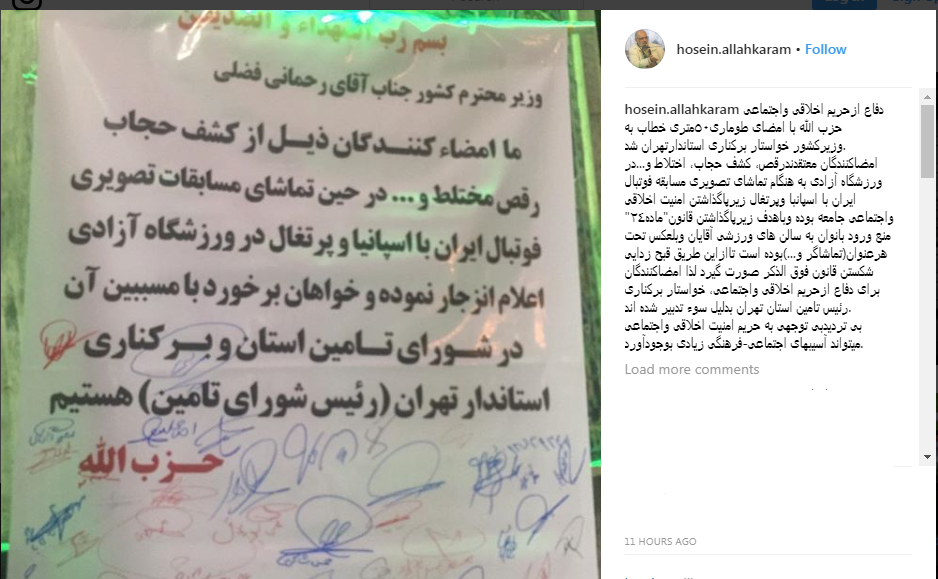 بسم رب الشهداء و الصدیقین
وزیر محترم کشور جناب آقای رحمانی فضلی
ما امضاء کنندگان ذیل از کشف حجاب
رقص مختلط و... در حین تماشای مسابقات تصویری
فوتبال ایران با اسپانیا و پرتغال در ورزشگاه آزادی
اعلام انزجار نموده و خواهان برخورد با مسببین آن
در شورای تامین استان و برکناری
استاندار تهران (رئیس شورای تامین) هستیم
حزب الله
hosein.allahkaram • Follow
hosein.allahkaram دفاع ازحریم اخلاقی واجتماعی
حزب الله با امضای طوماری۵۰متری خطاب به
وزیرکشور خواستار برکناری استاندارتهران شد.
امضاکنندگان معتقدندرقص، کشف حجاب، اختلاط و...در
ورزشگاه آزادی به هنگام تماشای تصویری مسابقه فوتبال
ایران با اسپانیا وپرتغال زیرپاگذاشتن امنیت اخلاقی
واجتماعی جامعه بوده وباهدف زیرپاگذاشتن قانون"ماده۲۴"
منع ورود بانوان به سالن های ورزشی آقایان وبلعکس تحت
هرعنوان(تماشاگر و...)بوده است تاازاین طریق قبح زدایی
شکستن قانون فوق الذکر صورت گیرد لذا امضاکنندگان
برای دفاع ازحریم اخلاقی واجتماعی، خواستار برکناری
رئیس تامین استان تهران بدلیل سوء تدبیر شده اند.
بی تردیدبی توجهی به حریم امنیت اخلاقی واجتماعی
میتواند آسیبهای اجتماعی-فرهنگی زیادی بوجودآورد.
Load more comments
11 HOURS AGO